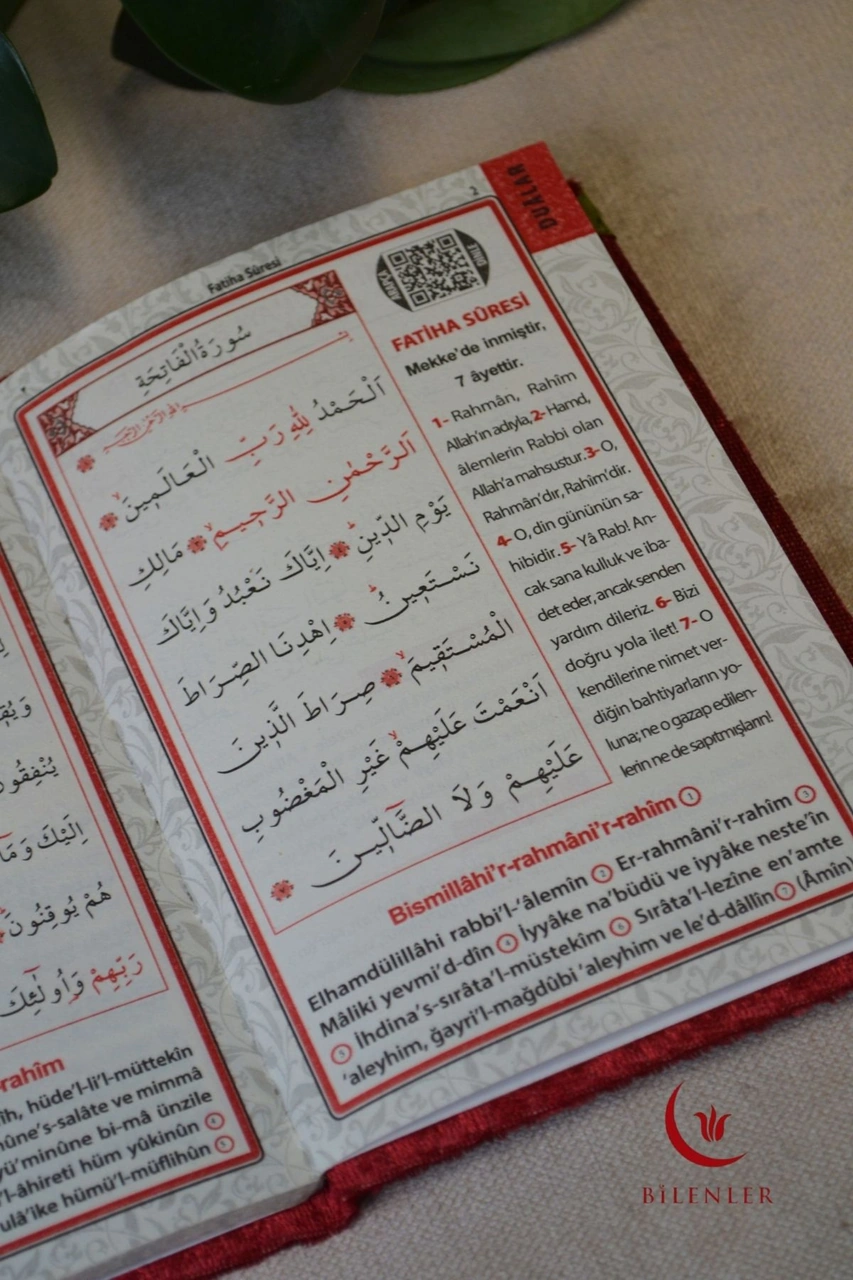 DUÂLAR
2
Fatiha Sûresi
سُورَةُ الْفَاتِحَةِ
اَلْحَمْدُ لِلّٰهِ رَبِّ الْعَالَمِينَۙ
اَلرَّحْمٰنِ الرَّحِيمِۙ مَالِكِ
يَوْمِ الدِّينِۜ اِيَّاكَ نَعْبُدُ وَاِيَّاكَ
نَسْتَعِينُۜ اِهْدِنَا الصِّرَاطَ
الْمُسْتَقِيمَۙ صِرَاطَ الَّذِينَ
اَنْعَمْتَ عَلَيْهِمْۙ غَيْرِ الْمَغْضُوبِ
عَلَيْهِمْ وَلَا الضَّٓالِّينَ
FATİHA SÛRESİ
Mekke’de inmiştir,
7 âyettir.
1- Rahmân, Rahîm
Allah’ın adıyla, 2- Hamd,
âlemlerin Rabbi olan
Allah’a mahsustur. 3- O,
Rahmân’dır, Rahîm’dir.
4- O, din gününün sa-
hibidir. 5- Yâ Rab! An-
cak sana kulluk ve iba-
det eder, ancak senden
yardım dileriz. 6- Bizi
doğru yola ilet! 7- O
kendilerine nimet ver-
diğin bahtiyarların yo-
luna; ne o gazap edilen-
lerin ne de sapıtmışların!
Bismillâhi’r-rahmâni’r-rahîm 1
Elhamdülillâhi rabbi’l-‘âlemîn 2 Er-rahmâni’r-rahîm 3
Mâliki yevmi’d-dîn 4 İyyâke na’büdü ve iyyâke neste’în
5 İhdina’s-sırâta’l-müstekîm 6 Sırâta’l-lezîne en’amte
‘aleyhim, ğayri’l-mağdûbi ‘aleyhim ve le’d-dâllîn 7 (Âmîn)
يُنْفِقُو
اِلَيْكَ وَمَا
هُمْ يُوقِنُونَ
رَبِّهِمْ وَاُولٰٓئِكَ
-rahîm
îh, hüde’l-li’l-müttekîn
nûne’s-salâte ve mimmâ
yü’minûne bi-mâ ünzile
’l-âhireti hüm yûkinûn 4
ulâ’ike hümü’l-müflihûn 5
BİLENLER